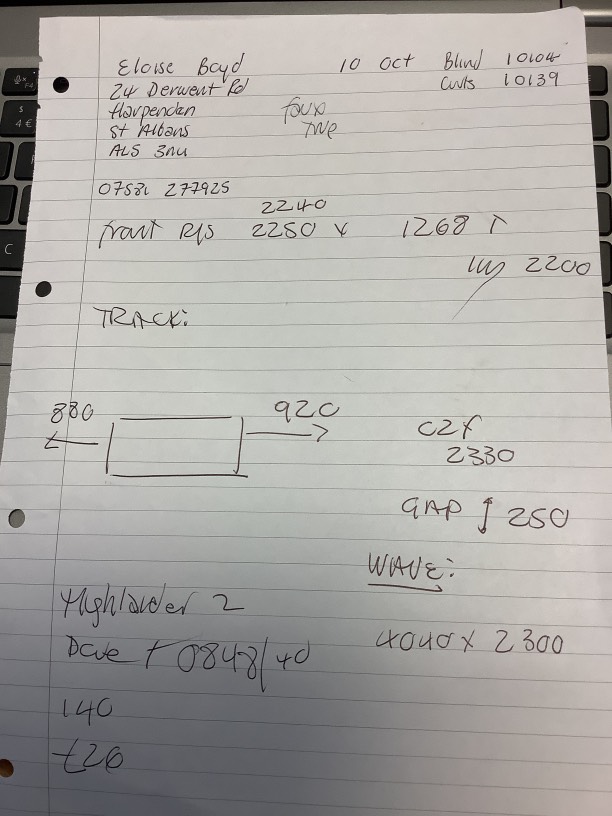 Eloise Boyd 10 Oct Blind 10104
24 Derwent Rd Cuts 10139
Harpenden faux
St Albans
AL5 3nu
277925
2240
front R/S 2250 x 1268
2200
TRACK:
880 920
c2f
2330
GAP ↕ 250
WAVE:
Highlander 2
4040 x 2300
Dove + 0848/40
140
+26